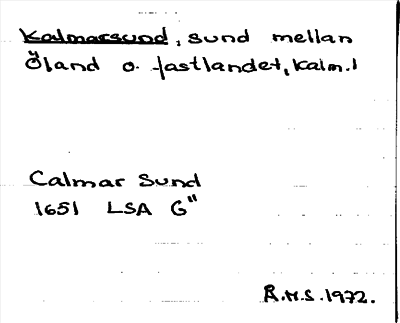 Kalmarsund, sund mellan
Öland o. fastlandet, kalm.l
Calmar Sund
1651 LSA G"
R.M.S. 1972.